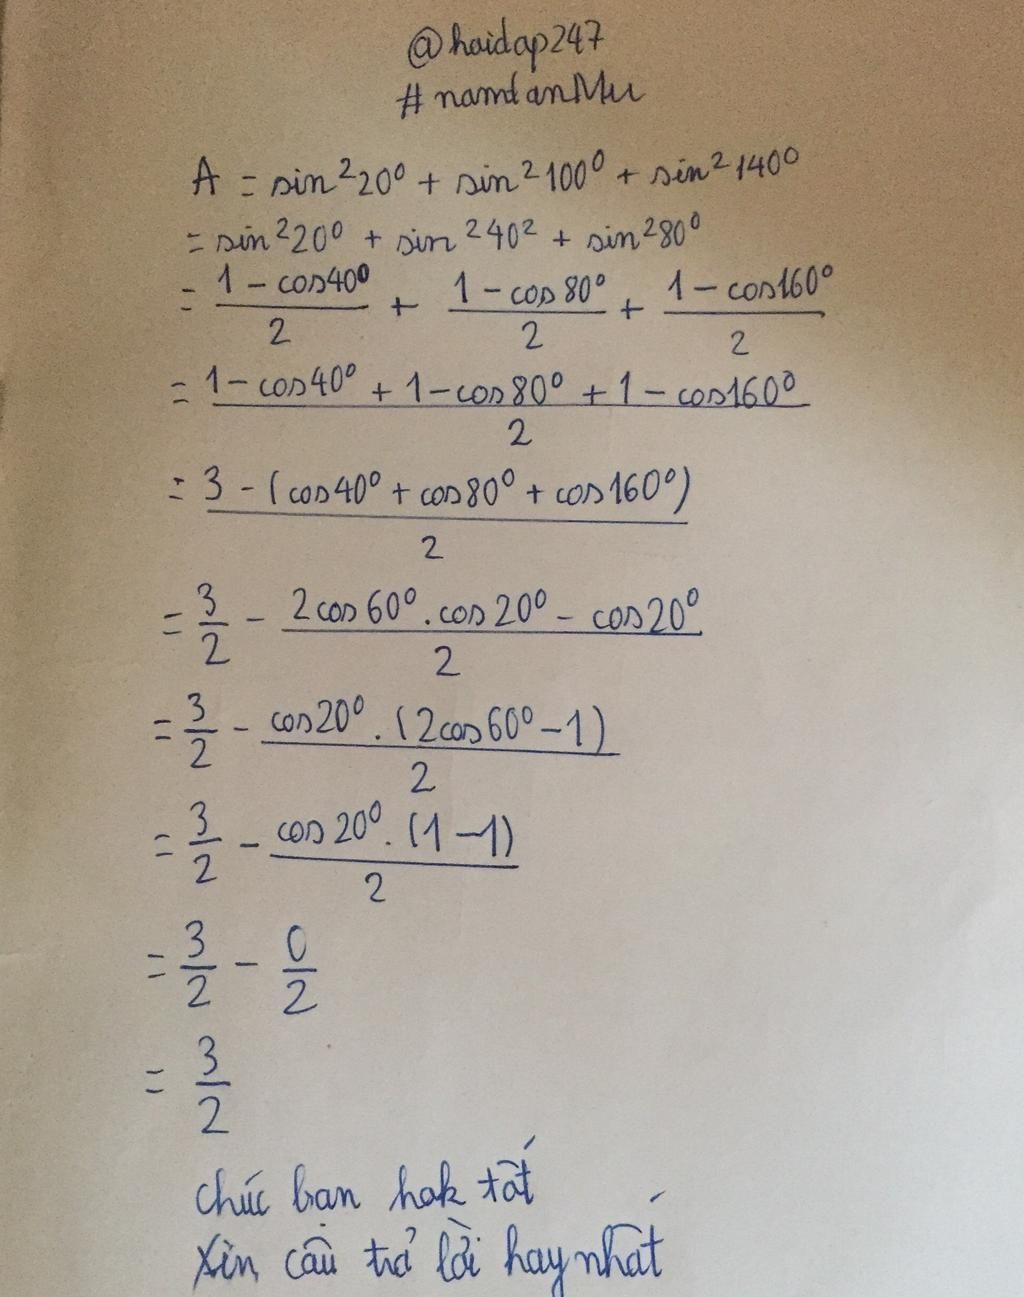 @hoidap247
#namdanMu
A = sin²20⁰ + sin²100⁰ + sin²140⁰
= sin²20⁰ + sin²40² + sin²80⁰
= (1 - cos40⁰)/2 + (1 - cos80⁰)/2 + (1 - cos160⁰)/2
= (1 - cos40⁰ + 1 - cos80⁰ + 1 - cos160⁰)/2
= (3 - (cos40⁰ + cos80⁰ + cos160⁰))/2
= 3/2 - (2cos60⁰.cos20⁰ - cos20⁰)/2
= 3/2 - (cos20⁰.(2cos60⁰ - 1))/2
= 3/2 - (cos20⁰.(1 - 1))/2
= 3/2 - 0/2
= 3/2
chúc bạn hok tốt
Xin câu trả lời hay nhất